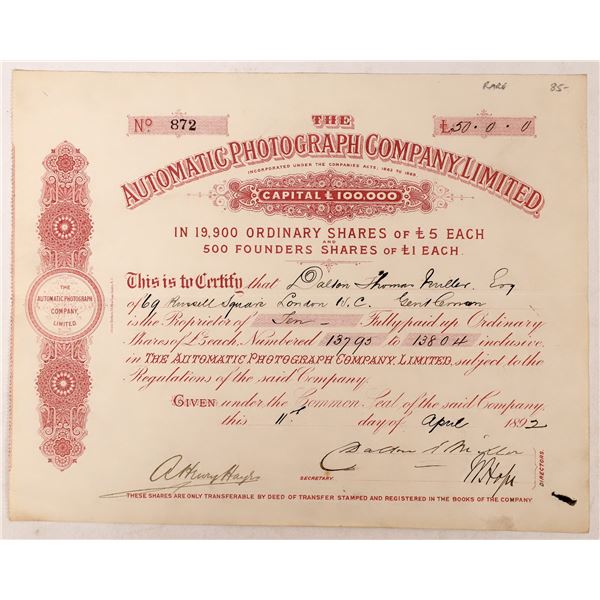 RARE 85-
No. 872
THE
£50 . 0 . 0
AUTOMATIC PHOTOGRAPH COMPANY, LIMITED.
INCORPORATED UNDER THE COMPANIES ACTS, 1862 TO 1889.
CAPITAL £100,000
IN 19,900 ORDINARY SHARES OF £5 EACH
AND
500 FOUNDERS SHARES OF £1 EACH.
THE
AUTOMATIC PHOTOGRAPH
COMPANY,
LIMITED.
This is to Certify that Dalton Thomas Miller, Esq
of 69 Russell Square London W.C. Gentleman
is the Proprietor of Ten - Fully paid up Ordinary
Shares of £5 each, Numbered 13795 to 13804 inclusive,
in THE AUTOMATIC PHOTOGRAPH COMPANY, LIMITED, subject to the
Regulations of the said Company.
GIVEN under the Common Seal of the said Company,
this 11th day of April 1892
Dalton T Miller
A Henry Hayes
SECRETARY.
W Hope
DIRECTORS.
THESE SHARES ARE ONLY TRANSFERABLE BY DEED OF TRANSFER STAMPED AND REGISTERED IN THE BOOKS OF THE COMPANY.